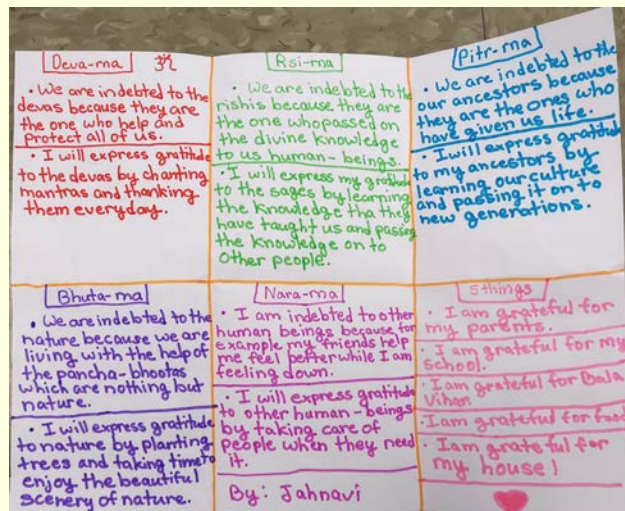 Deva-rna ॐ
• We are indebted to the
devas because they are
the one who help and
protect all of us.
• I will express gratitude
to the devas by chanting
mantras and thanking
them everyday.
Rsi-rna
• We are indebted to the
rishis because they are
the one who passed on
the divine knowledge
to us human-beings.
• I will express my gratitude
to the sages by learning
the knowledge tha they
have taught us and passing
the knowledge on to
other people.
Pitr-rna
• We are indebted to the
our ancestors because
they are the ones who
have given us life.
• I will express gratitude
to my ancestors by
learning our culture
and passing it on to
new generations.
Bhuta-rna
• We are indebted to the
nature because we are
living with the help of
the pancha-bhootas
which are nothing but
nature.
• I will express gratitude
to nature by planting
trees and taking time to
enjoy the beautiful
scenery of nature.
Nara-rna
• I am indebted to other
human beings because for
example my friends help
me feel better while I am
feeling down.
• I will express gratitude
to other human-beings
by taking care of
people when they need
it.
By: Jahnavi
5 things
• I am grateful for
my parents.
• I am grateful for my
school.
• I am grateful for Bala
Vihar.
• I am grateful for food
• I am grateful for
my house!